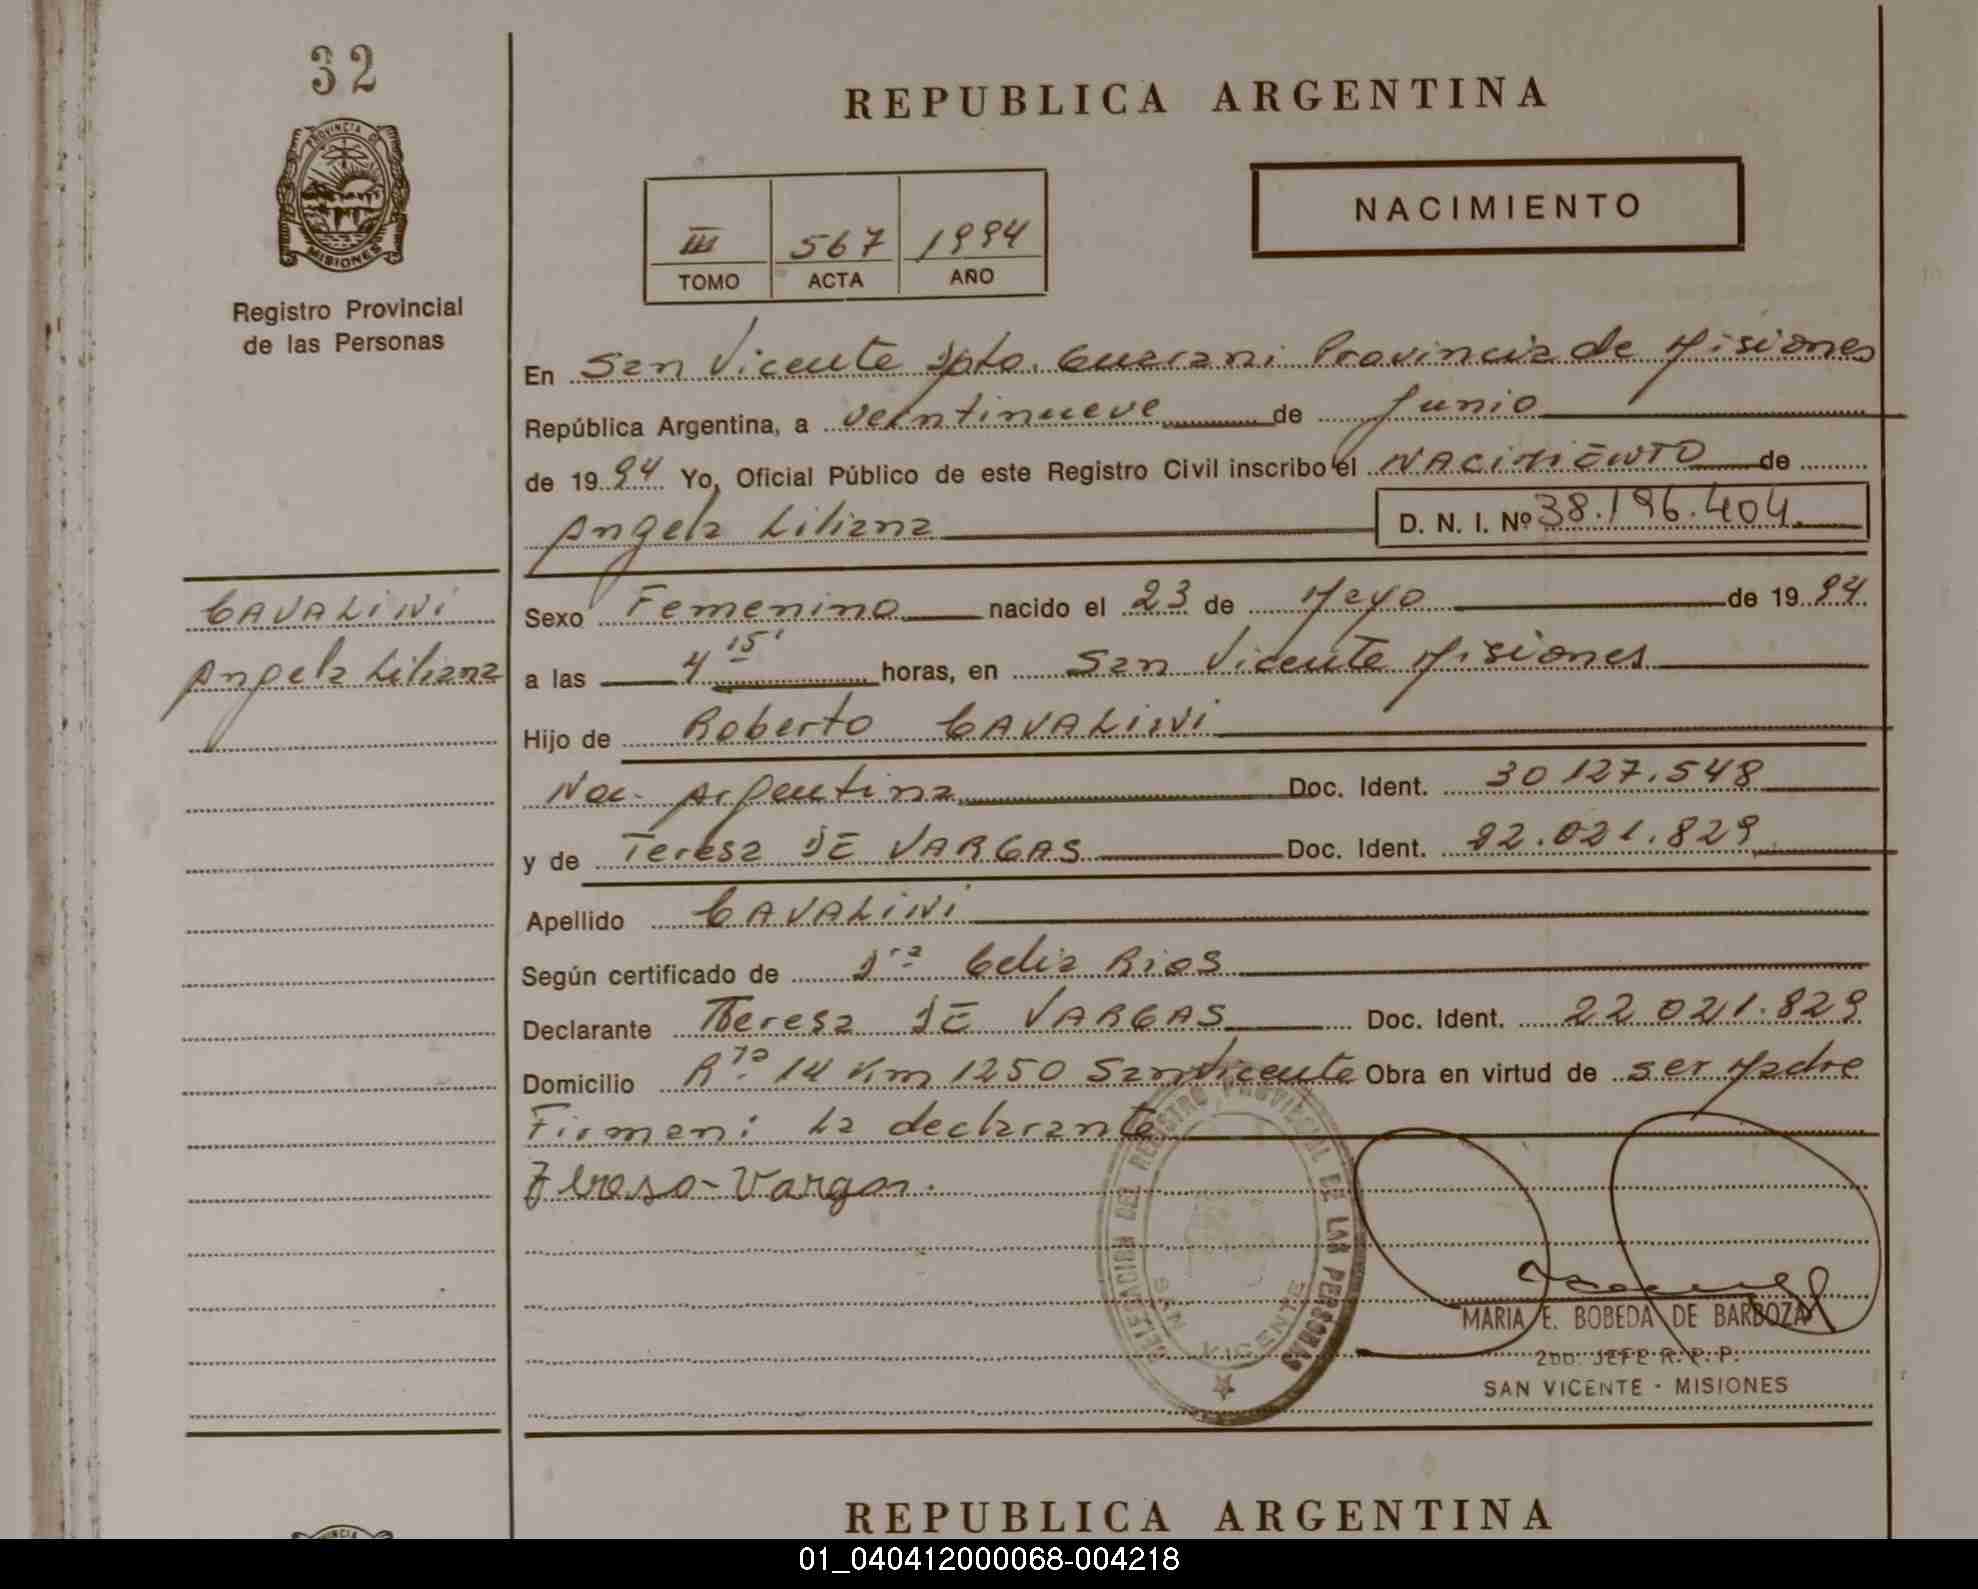 32
PROVINCIA DE
MISIONES
Registro Provincial
de las Personas
REPUBLICA ARGENTINA
III 567 1994
TOMO ACTA AÑO
NACIMIENTO
En San Vicente Dpto. Guarani Provincia de Misiones
República Argentina, a veintinueve de Junio
de 1994 Yo, Oficial Público de este Registro Civil inscribo el NACIMIENTO de
Angela Liliana D. N. I. Nº 38.196.404
CAVALINI
Angela Liliana
Sexo Femenino nacido el 23 de Mayo de 1994
a las 4 15' horas, en San Vicente Misiones
Hijo de Roberto CAVALINI
Nac. Argentina Doc. Ident. 30 127.548
y de Teresa DE VARGAS Doc. Ident. 22.021.829
Apellido CAVALINI
Según certificado de Dra Celia Rios
Declarante Teresa DE VARGAS Doc. Ident. 22 021.829
Domicilio Rta. 14 Km 1250 San Vicente Obra en virtud de ser Madre
Firman: La declarante
Tereso-Vargas.
DELEGACION DEL REGISTRO PROVINCIAL DE LAS PERSONAS
SAN VICENTE
MARIA E. BOBEDA DE BARBOZA
2DO. JEFE R. P. P.
SAN VICENTE - MISIONES
REPUBLICA ARGENTINA
01_040412000068-004218